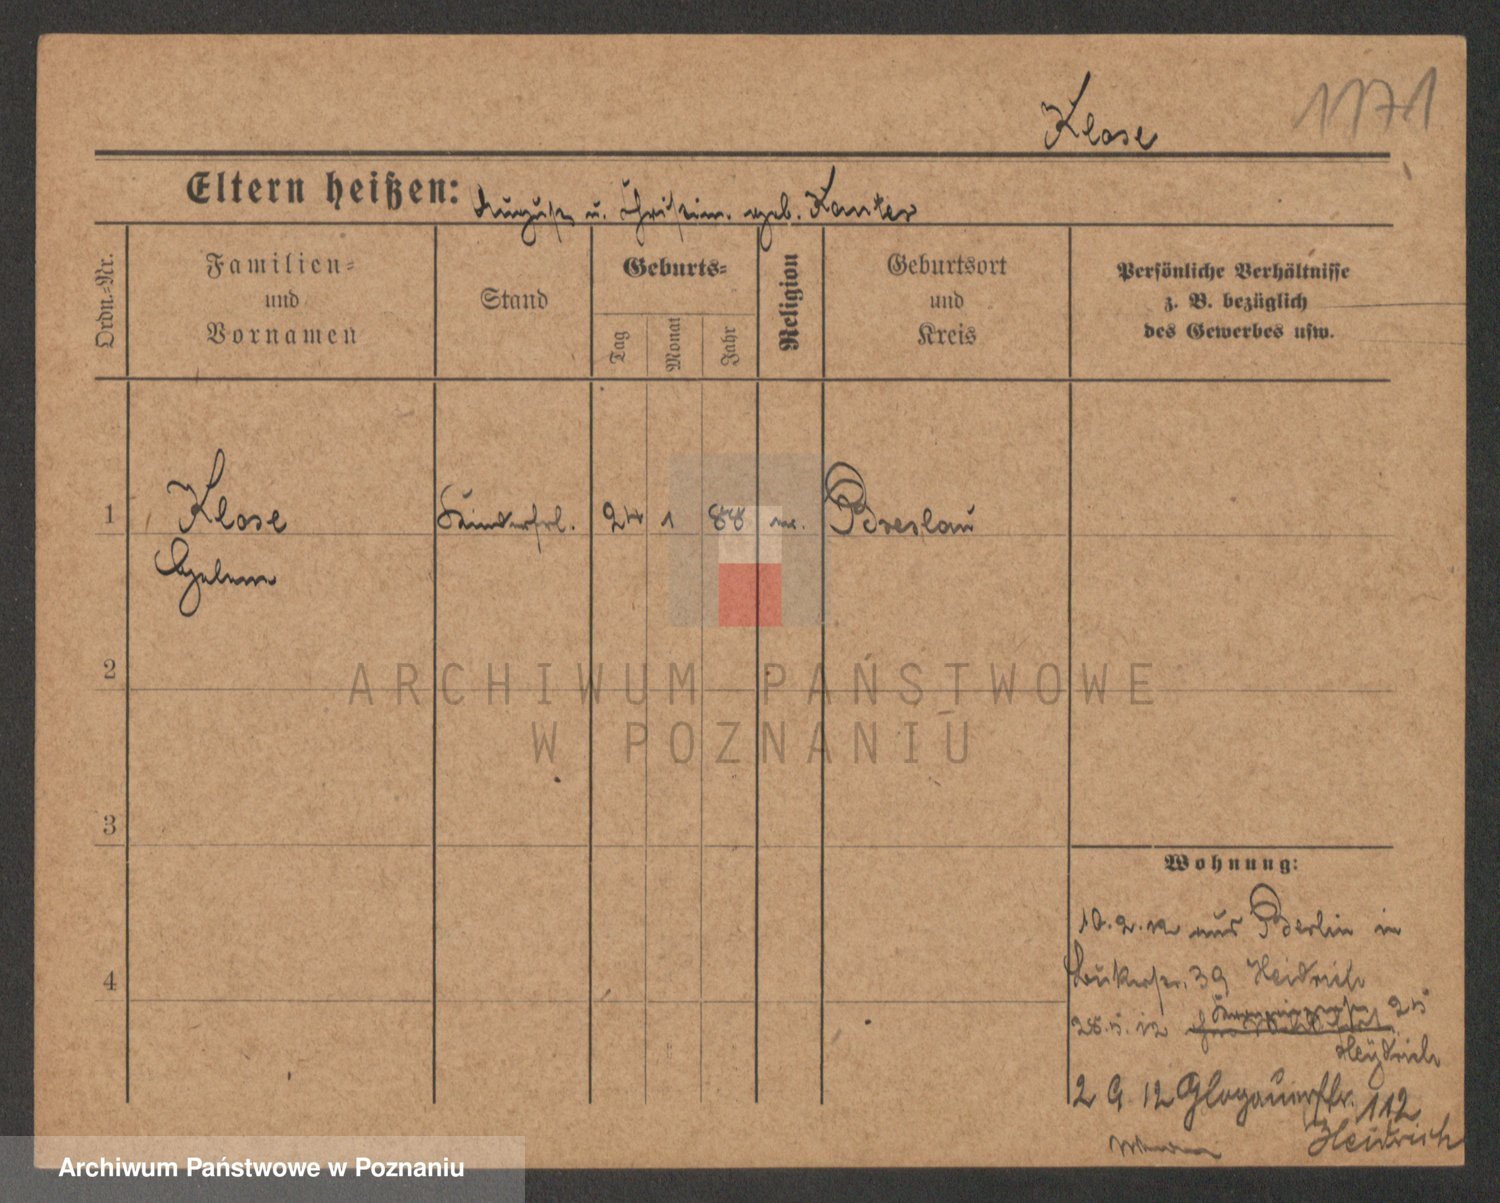 1171
Klose
Eltern heißen: August u. Christin. geb. Kanter
Ordn.=Nr.
Familien=
und
Vornamen
Stand
Geburts=
Tag
Monat
Jahr
Religion
Geburtsort
und
Kreis
Persönliche Verhältnisse
z. B. bezüglich
des Gewerbes usw.
1
Klose
Kinderfrl. 24 1 88 Breslau
Helene
2
ARCHIWUM PAŃSTWOWE
W POZNANIU
3
4
Wohnung:
10.2.12 aus Berlin in
39 Heidrich
28.5.12 25
Heydrich
2 9 12 Glogauerstr. 112
Heidrich
Archiwum Państwowe w Poznaniu